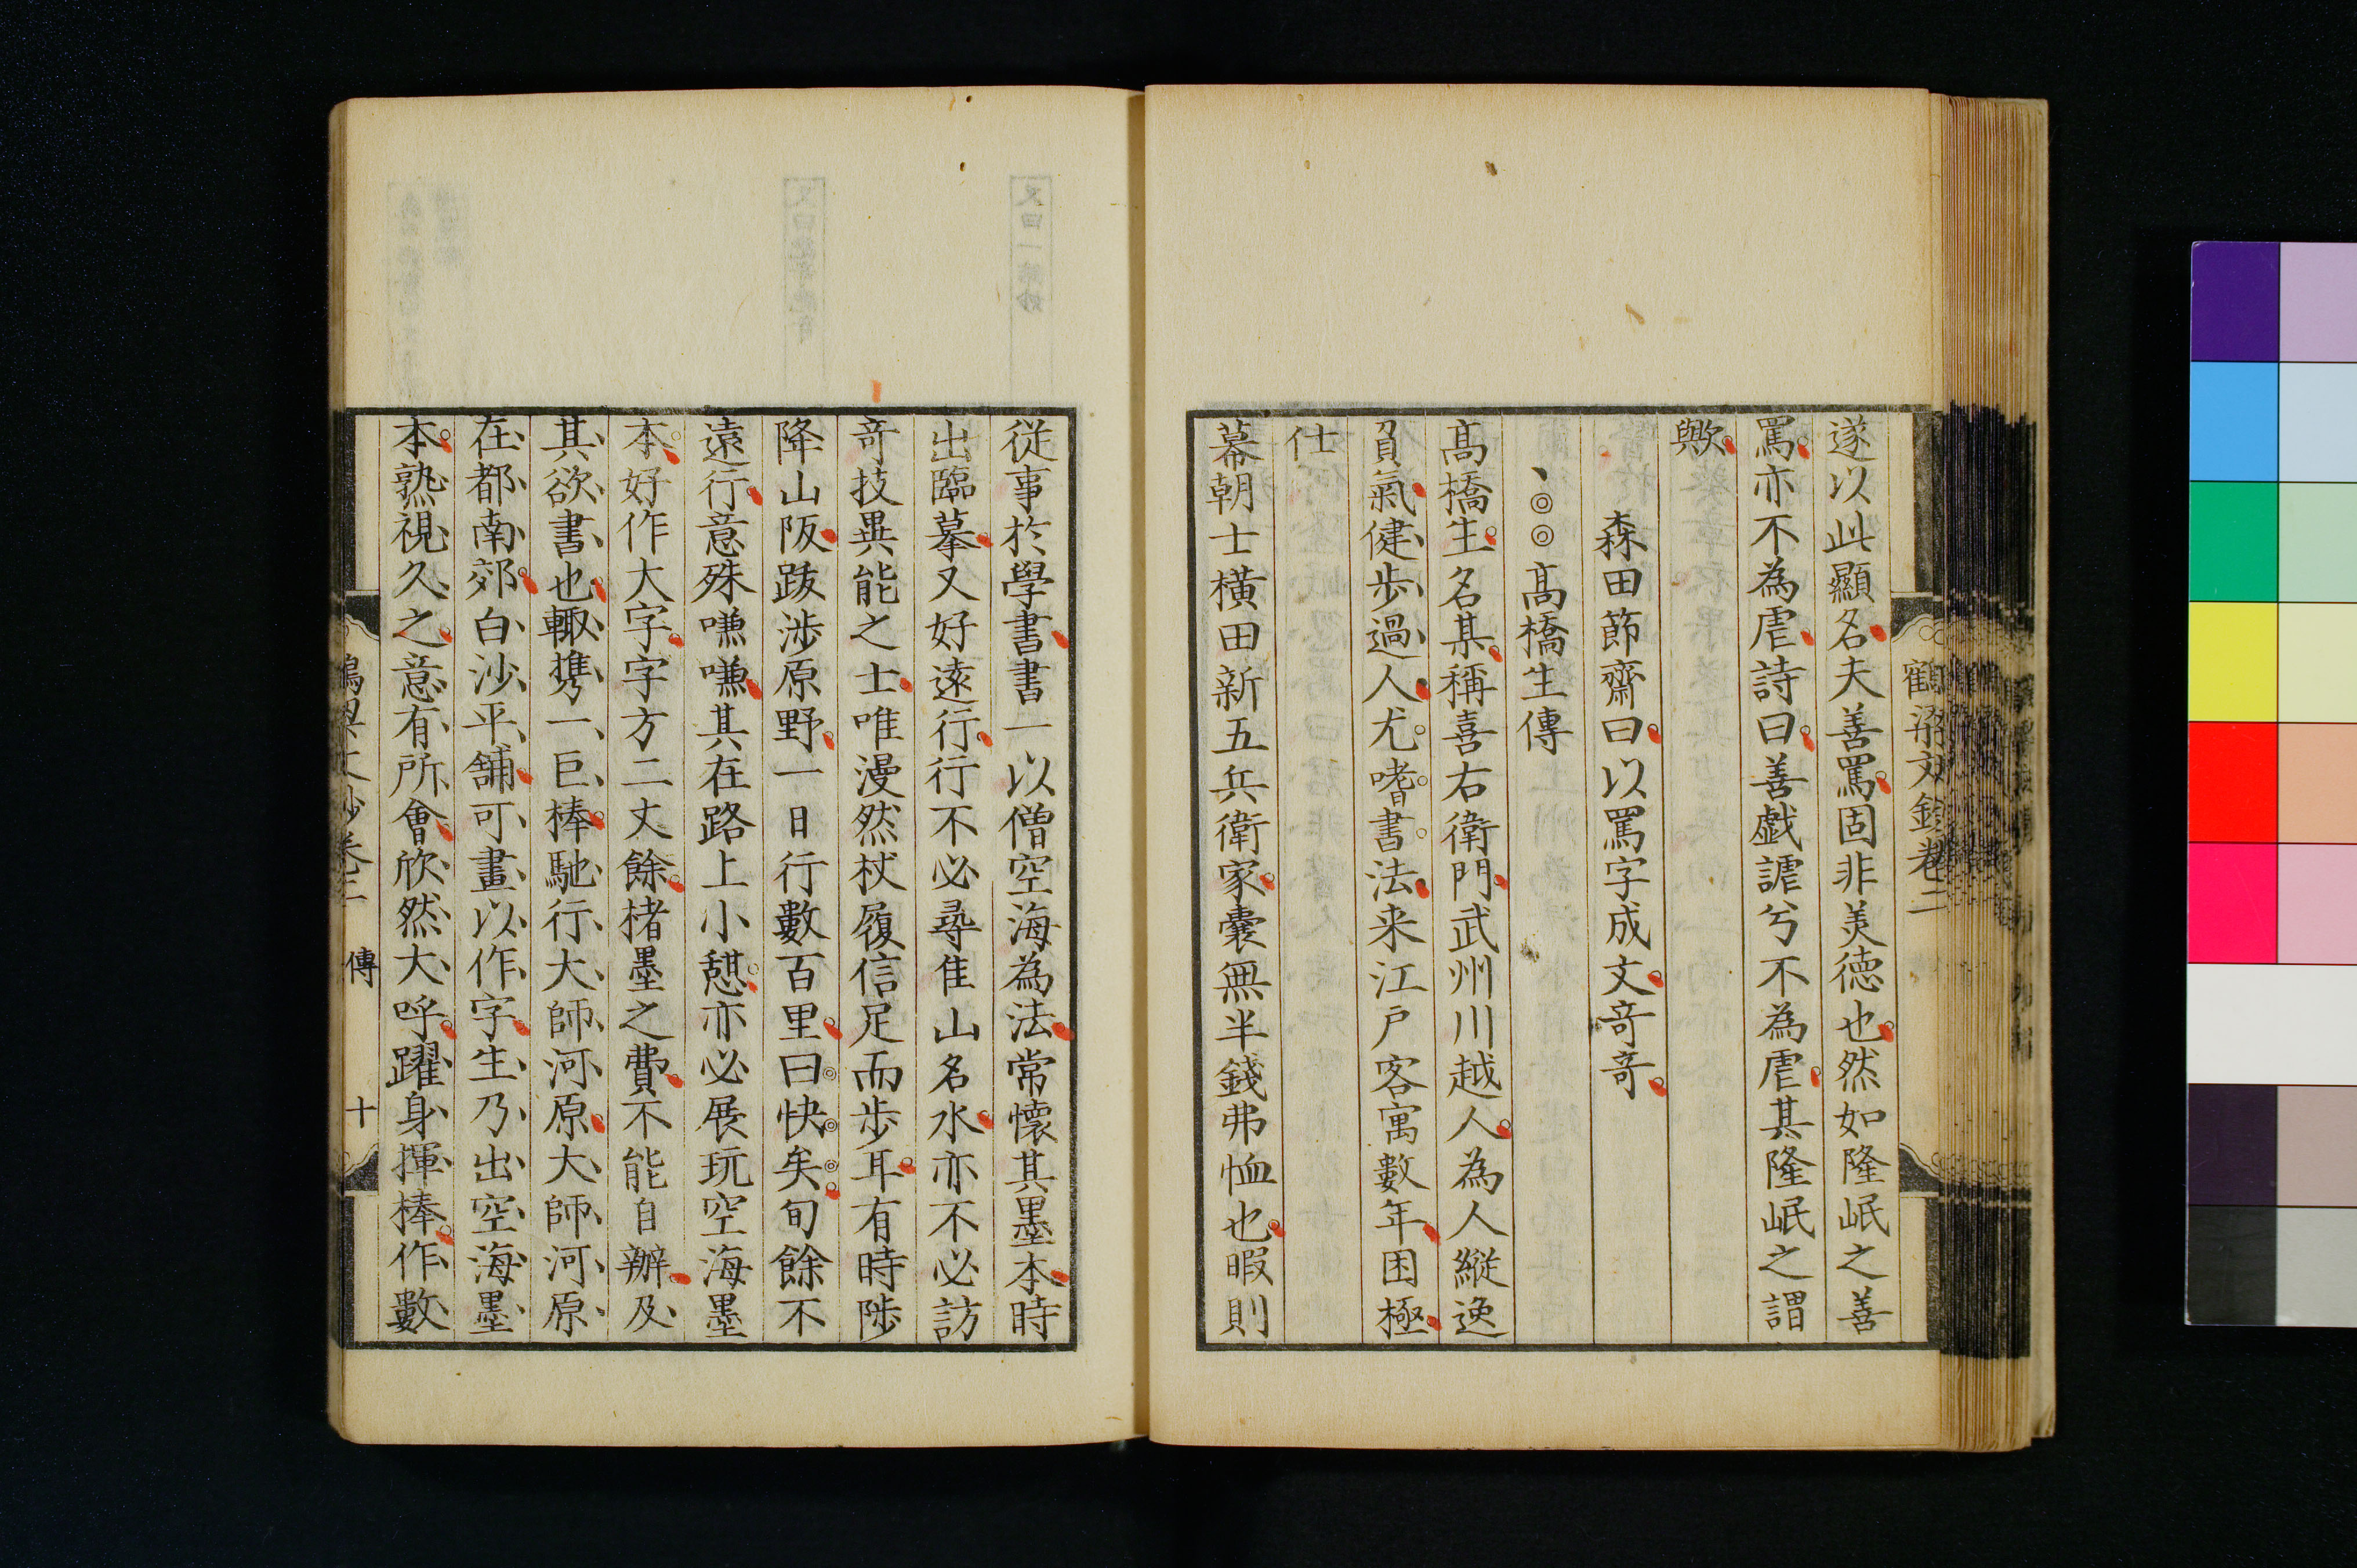 鶴梁文鈔卷二
遂以此顯名夫善罵固非美德也然如隆岷之善
罵亦不為虐詩曰善戯謔兮不為虐其隆岷之謂
歟
森田節齋曰以罵字成文竒竒
髙橋生傳
髙橋生名某稱喜右衛門武州川越人為人縱逸
負氣健步過人尤嗜書法来江戸客寓數年困極
仕
幕朝士横田新五兵衛家嚢無半錢弗恤也暇則
従事於學書書一以僧空海為法常懷其墨本時
出臨摹又好遠行行不必尋佳山名水亦不必訪
竒技異能之士唯漫然杖履信足而步耳有時陟
降山阪跋渉原野一日行數百里曰快矣旬餘不
遠行意殊嗛嗛其在路上小憇亦必展玩空海墨
本好作大字字方二丈餘楮墨之費不能自辦及
其欲書也輙攜一巨棒馳行大師河原大師河原
在都南郊白沙平舗可畫以作字生乃出空海墨
本熟視久之意有所會欣然大呼躍身揮棒作數
鶴梁文鈔卷二 傳 十